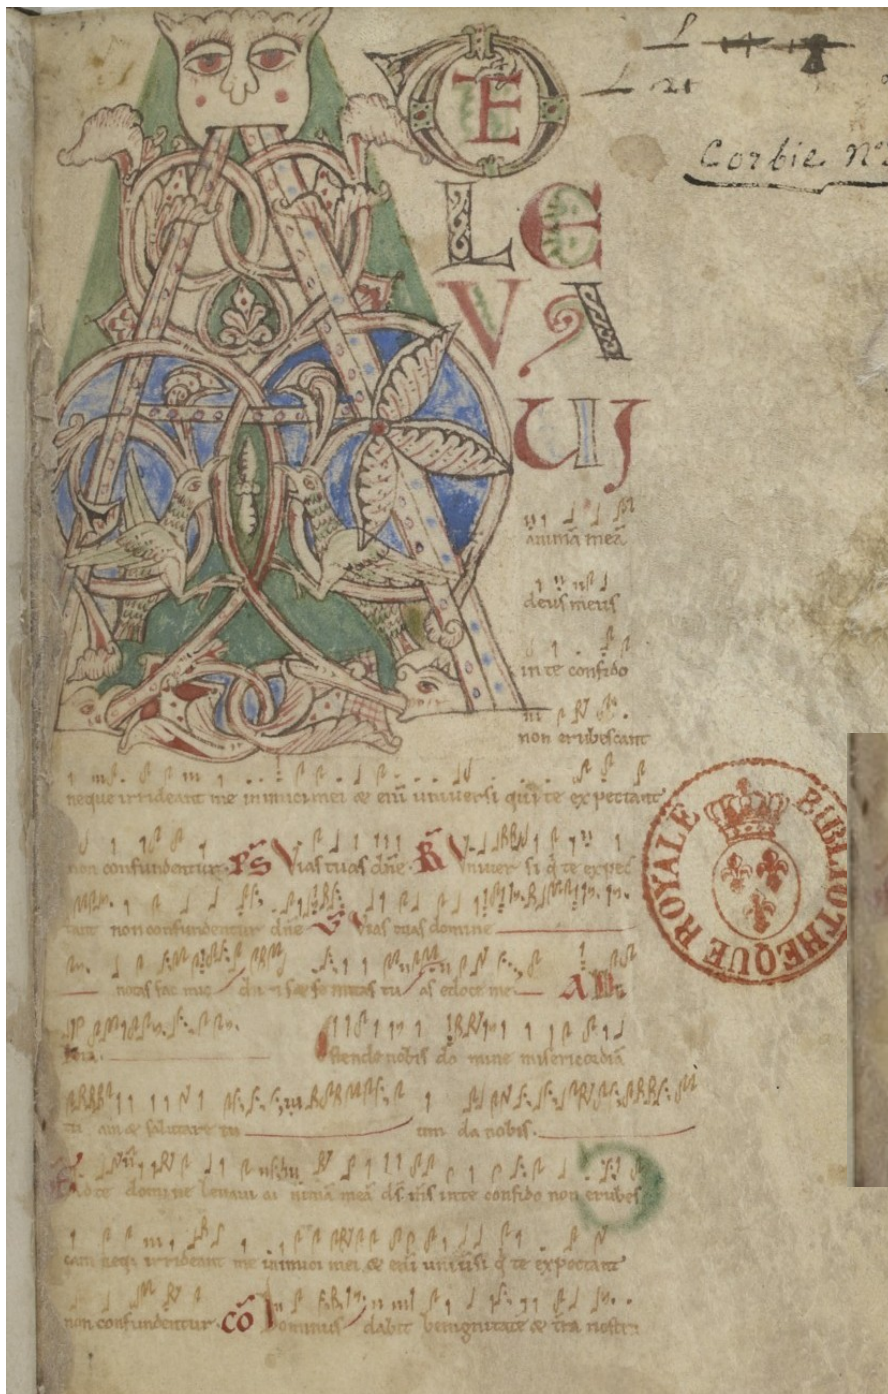 AD TE
LE
VA
UI
animã meã
deus meus
in te confido
non erubescant
neque irrideant me inimici mei & eni universi qui te expectant
non confundentur. PS Vias tuas dñe. R Univer si q te expec
tant non confundentur dñe V Vias tuas domine
notas fac mic & semitas tu as edoce me ALL
luia. Ostende nobis do mine misericordiã
tu am & salutare tu um da nobis.
Ad te domine levavi ai nimã meã ds ms in te confido non erubes
cam neq irrideant me inimici mei & eni univsi q te expectant
non confundentur. CÕ Dominus dabit benignitatẽ & tra nostra
Corbie N°
BIBLIOTHEQUE ROYALE